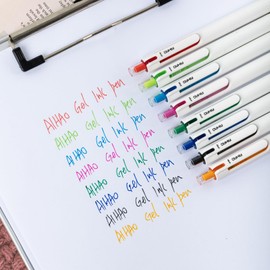 AIHAO Gel Ink pen
AIHAO Gel Ink pen
AIHAO Gel Ink pen
AIHAO Gel Ink pen
AIHAO Gel Ink pen
AIHAO Gel Ink pen
AIHAO Gel Ink pen
AIHAO Gel Ink pen